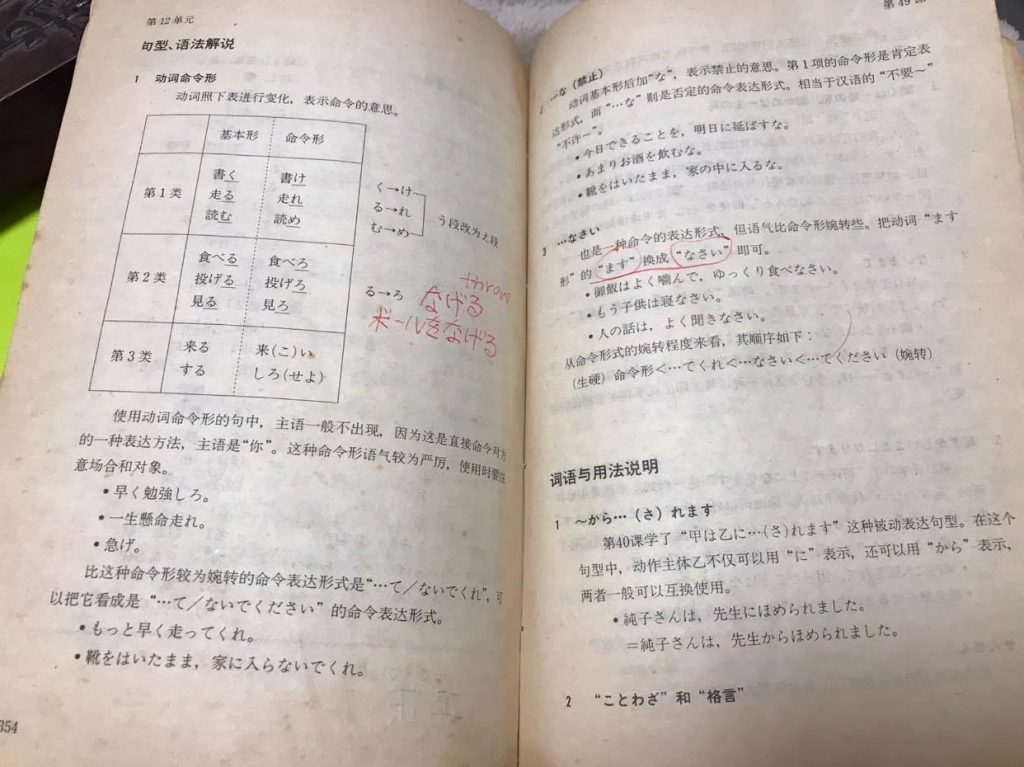 第12单元
句型、语法解说
1 动词命令形
动词照下表进行变化，表示命令的意思。
基本形 命令形
第1类
書く 書け
走る 走れ
読む 読め
く→け
る→れ
む→め
う段改为え段
第2类
食べる 食べろ
投げる 投げろ
見る 見ろ
る→ろ
throw
なげる
ボールをなげる
第3类
来る 来(こ)い
する しろ(せよ)
使用动词命令形的句中，主语一般不出现，因为这是直接命令对方
的一种表达方法，主语是“你”。这种命令形语气较为严厉，使用时要注
意场合和对象。
•早く勉強しろ。
•一生懸命走れ。
•急げ。
比这种命令形较为婉转的命令表达形式是“…て／ないでくれ”，可
以把它看成是“…て／ないでください”的命令表达形式。
•もっと早く走ってくれ。
•靴をはいたまま，家に入らないでくれ。
354
第49课
…な（禁止）
动词基本形后加“な”，表示禁止的意思。第1项的命令形是肯定表
达形式，而“…な”则是否定的命令表达形式。相当于汉语的“不要～”
“不许～”。
•今日できることを，明日に延ばすな。
•あまりお酒を飲むな。
•靴をはいたまま，家の中に入るな。
3 …なさい
也是一种命令的表达形式，但语气比命令形婉转些。把动词“ます
形”的“ます”换成“なさい”即可。
•御飯はよく噛んで，ゆっくり食べなさい。
•もう子供は寝なさい。
•人の話は，よく聞きなさい。
从命令形式的婉转程度来看，其顺序如下：
（生硬）命令形＜…てくれ＜…なさい＜…てください（婉转）
词语与用法说明
1 ～から…（さ）れます
第40课学了“甲は乙に…(さ)れます”这种被动表达句型。在这个
句型中，动作主体乙不仅可以用“に”表示，还可以用“から”表示，
两者一般可以互换使用。
•純子さんは，先生にほめられました。
＝純子さんは，先生からほめられました。
2 “ことわざ”和“格言”